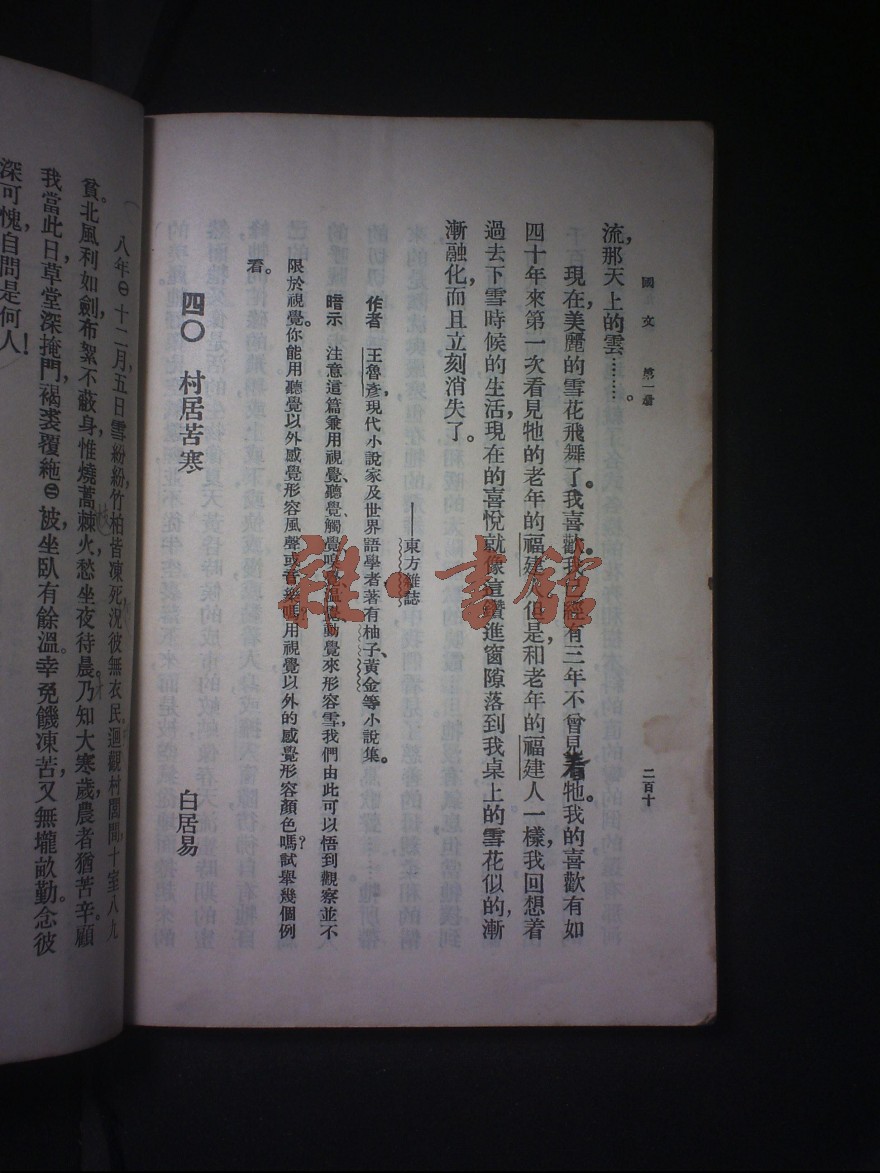 國文 第一冊 二百十
流，那天上的雲………。
現在，美麗的雪花飛舞了。我喜歡，我已經有三年不曾見着牠。我的喜歡有如
四十年來第一次看見牠的老年的福建人。但是，和老年的福建人一樣，我回想着
過去下雪時候的生活，現在的喜悅就像這鑽進窗隙落到我桌上的雪花似的，漸
漸融化，而且立刻消失了。
——東方雜誌
作者 王魯彥，現代小說家及世界語學者，著有柚子、黃金等小說集。
暗示 注意這篇兼用視覺、聽覺、觸覺、嗅覺、溫覺、動覺來形容雪，我們由此可以悟到觀察並不
限於視覺。你能用聽覺以外感覺形容風聲或音樂嗎？用視覺以外的感覺形容顏色嗎？試舉幾個例
看。
四〇 村居苦寒 白居易
八年㊀十二月，五日雪紛紛，竹柏皆凍死，況彼無衣民。迴觀村閭間，十室八九
貧。北風利如劍，布絮不蔽身。惟燒蒿棘火，愁坐夜待晨。乃知大寒歲，農者猶苦辛。顧
我當此日，草堂深掩門，褐裘覆絁㊁被，坐臥有餘溫。幸免饑凍苦，又無壠畝勤。念彼
深可愧，自問是何人！
雜書館